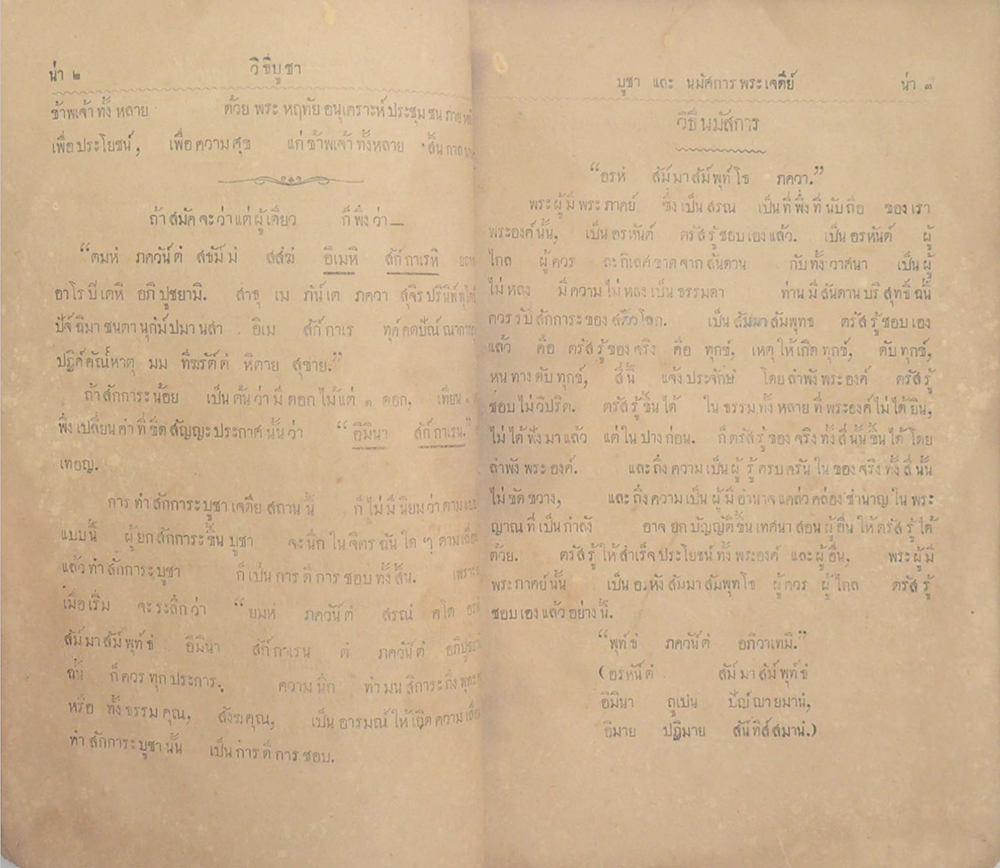 น่า ๒ วิธีบูชา
ข้าพเจ้าทั้งหลาย ด้วย พระ หฤทัย อนุเคราะห์ ประชุม ชน
เพื่อ ประโยชน์, เพื่อ ความ ศุข แก่ ข้าพเจ้า ทั้งหลาย สิ้น กาล
ถ้า สมัค จะ ว่า แต่ ผู้ เดียว ก็ พึง ว่า—
“ตมหํ ภควนฺตํ สธมฺมํ สสฆํ อิเมหิ สกฺกาเรหิ
อาโรปิเตหิ อภิปูชยามิ. สาธุ เม ภนฺเต ภควา สุจิร ปรินิพฺพุโต
ปจฺฉิมา ชนตา นุกมฺปมานสา อิเม สกฺกาเร
ปฏิคฺคณฺหาตุ มม ทีฆรตฺตํ หิตาย สุขาย.”
ถ้า สักการะ น้อย เป็น ต้น ว่า มี ดอก ไม้ แต่ ๑ ดอก, เทียน
พึง เปลี่ยน คำ ที่ ขีด สัญญะ ประกาศ นั้น ว่า “อิมินา สกฺกาเรน.”
เทอญ.
การ ทำ สักการะ บูชา เจดีย สถาน นี้ ก็ ไม่ มี นิยม ว่า ตาม
แบบนี้ ผู้ ยก สักการะ ขึ้น บูชา จะ นึก ใน จิตร ฉัน ใด ๆ ตาม
แล้ว ทำ สักการะ บูชา ก็ เป็น การ ดี การ ชอบ ทั้ง สิ้น.
เมื่อ เริ่ม จะ ระลึก ว่า “ยมหํ ภควนฺตํ สรณํ คโต
สมฺมาสมฺพุทฺธํ อิมินา สกฺกาเรน ตํ ภควนฺตํ
ฉนี้ ก็ ควร ทุก ประการ. ความ นึก ทำ มน สิการะ ถึง
หรือ ทั้ง ธรรม คุณ, สังฆ คุณ, เป็น อารมณ์ ให้ เกิด ความ
ทำ สักการะ บูชา นั้น เป็น การ ดี การ ชอบ.
บูชา และ นมัศการ พระ เจดีย์ น่า ๓
วิธี นมัสการ
“อรหํ สมฺมาสมฺพุทฺโธ ภควา.”
พระ ผู้ มี พระ ภาคย์ ซึ่ง เป็น สรณ เป็น ที่ พึ่ง ที่ นับ ถือ ของ เรา
พระองค์ นั้น, เป็น อรหันต์ ตรัส รู้ ชอบ เอง แล้ว. เป็น อรหันต์ ผู้
ไกล ผู้ ควร ละ กิเลศ ขาด จาก สันดาน กับ ทั้ง วาศนา เป็น ผู้
ไม่ หลง มี ความ ไม่ หลง เป็น ธรรมดา ท่าน มี สันดาน บริ สุทธิ์ ฉนี้
ควร รับ สักการะ ของ สัตว โลก. เป็น สัมมา สัมพุทธ ตรัส รู้ ชอบ เอง
แล้ว คือ ตรัส รู้ ของ จริง คือ ทุกข์, เหตุ ให้ เกิด ทุกข์, ดับ ทุกข์,
หน ทาง ดับ ทุกข์, สี่ นี้ แจ้ง ประจักษ์ โดย ลำพัง พระ องค์ ตรัส รู้
ชอบ ไม่ วิปริต. ตรัส รู้ ขึ้น ได้ ใน ธรรม ทั้ง หลาย ที่ พระองค์ ไม่ ได้ ยิน,
ไม่ ได้ ฟัง มา แล้ว แต่ ใน ปาง ก่อน. ก็ ตรัส รู้ ของ จริง ทั้ง สี่ นั้น ขึ้น ได้ โดย
ลำพัง พระ องค์. และ ถึง ความ เป็น ผู้ รู้ ครบ ครัน ใน ของ จริง ทั้ง สี่ นั้น
ไม่ ขัด ขวาง, และ ถึง ความ เป็น ผู้ มี อำนาจ แคล่ว คล่อง ชำนาญ ใน พระ
ญาณ ที่ เป็น กำลัง อาจ ยก บัญญัติ ขึ้น เทศนา สอน ผู้ อื่น ให้ ตรัส รู้ ได้
ด้วย. ตรัส รู้ ให้ สำเร็จ ประโยชน์ ทั้ง พระองค์ และ ผู้ อื่น. พระ ผู้ มี
พระ ภาคย์ นั้น เป็น อะหัง สัมมา สัมพุทโธ ผู้ ควร ผู้ ไกล ตรัส รู้
ชอบ เอง แล้ว อย่าง นี้.
“พุทฺธํ ภควนฺตํ อภิวาเทมิ.”
(อรหนฺตํ สมฺมาสมฺพุทฺธํ
อิมินา ถูเปน ปญฺญายมานํ,
อิมาย ปฏิมาย สนฺทิสฺสมานํ.)